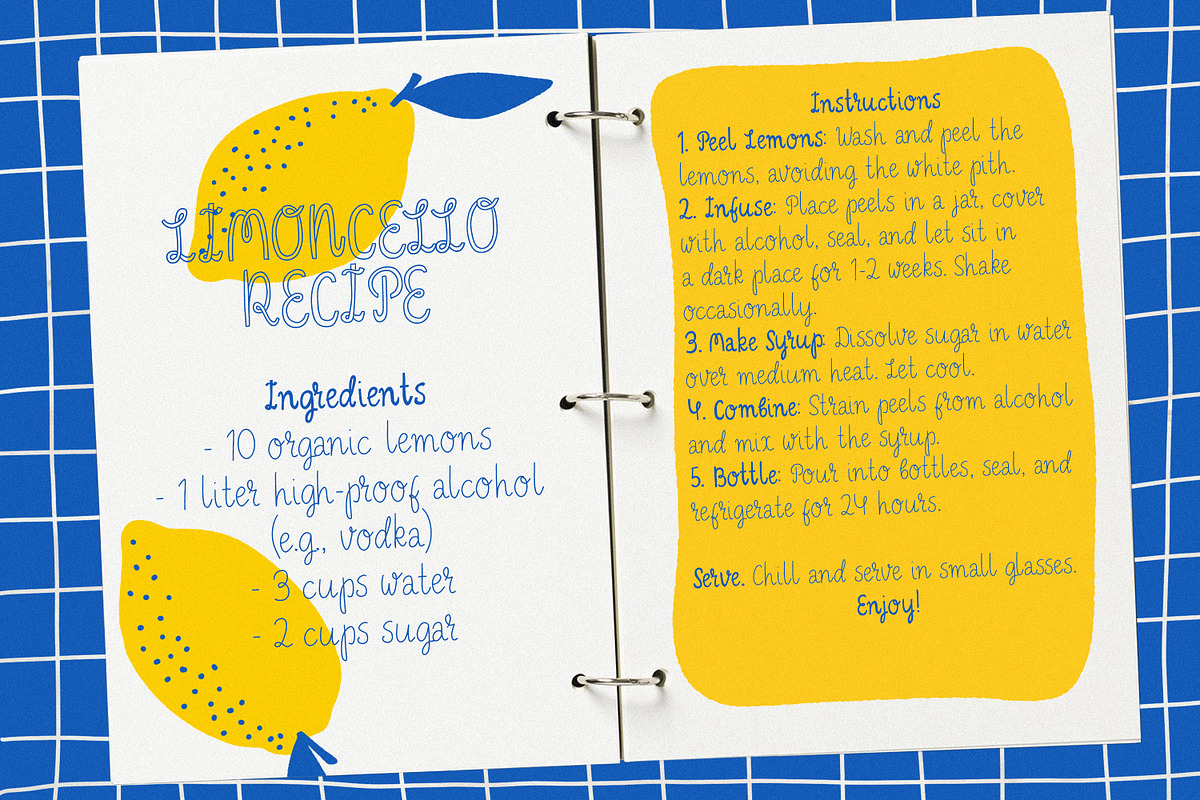 LIMONCELLO
RECIPE
Ingredients
- 10 organic lemons
- 1 liter high-proof alcohol
(e.g., vodka)
- 3 cups water
- 2 cups sugar
Instructions
1. Peel Lemons: Wash and peel the
lemons, avoiding the white pith.
2. Infuse: Place peels in a jar, cover
with alcohol, seal, and let sit in
a dark place for 1-2 weeks. Shake
occasionally.
3. Make Syrup: Dissolve sugar in water
over medium heat. Let cool.
4. Combine: Strain peels from alcohol
and mix with the syrup.
5. Bottle: Pour into bottles, seal, and
refrigerate for 24 hours.
Serve. Chill and serve in small glasses.
Enjoy!